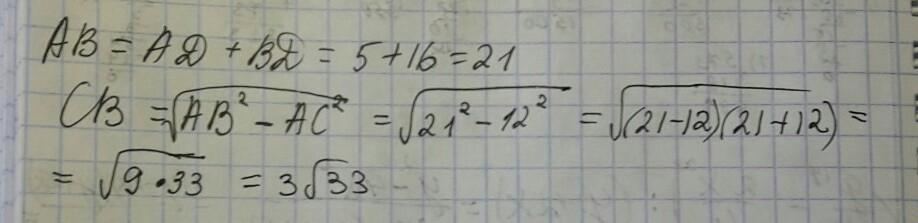 AB = AD + BD = 5+16=21
CB = √(AB² − AC²) = √(21² − 12²) = √((21−12)(21+12)) =
= √(9•33) = 3√33